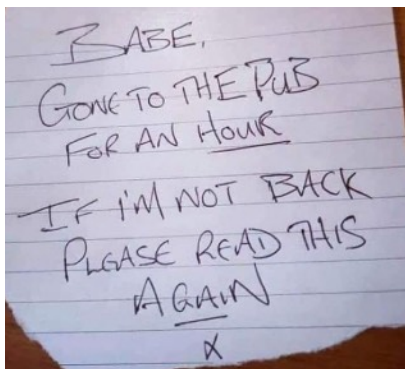 BABE,
GONE TO THE PUB
FOR AN HOUR
IF I'M NOT BACK
PLEASE READ THIS
AGAIN
X